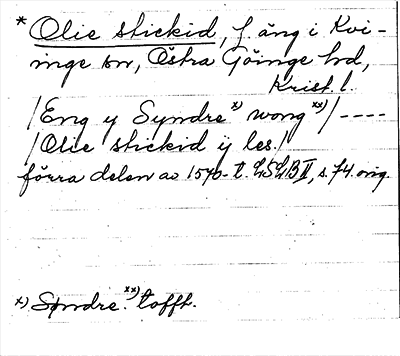 * Olie stickid, f. äng i Kvi-
inge sn, Östra Göinge hd,
Krist. l.
/Eng y Syndre x) wong xx)/ ----
/Olie stickid ÿ les./
förra delen av 1570-t. LSLB II, s. 74. orig.
x) Søndre. xx) tofft.